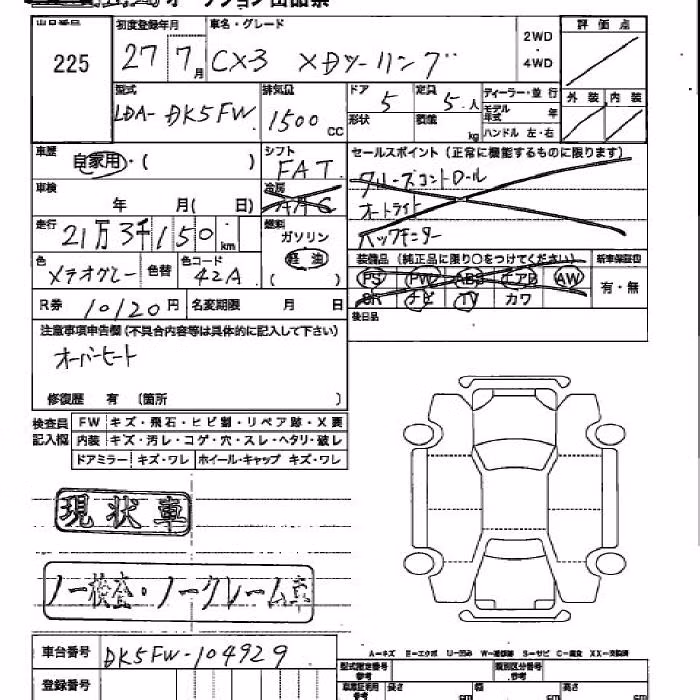 オークション出品票
出品番号 初度登録年月 車名・グレード 2WD ・ 4WD 評価点
225 27 7月 CX-3 XDツーリング
型式 排気量 ドア 定員 ディーラー・並行 外装 内装
LDA-DK5FW 1500cc 5 5人 モデル年式 年
形状 積載 kg ハンドル 左・右
車歴 シフト セールスポイント(正常に機能するものに限ります)
自家用・( ) FAT クルーズコントロール
車検 年 月( 日) 冷房 AAC オートライト
走行 21万3千150km 燃料 ガソリン バックモニター
軽油 ( )
色 メテオグレー 色替 色コード 42A 装備品(純正品に限り○をつけてください) 新車保証書
PS PW ABS エアB AW 有・無
SR ナビ TV カワ
R券 10120円 名変期限 月 日 後日品
注意事項申告欄(不具合内容等は具体的に記入して下さい)
オーバーヒート
修復歴 有 (箇所 )
検査員記入欄 FW キズ・飛石・ヒビ割・リペア跡・X要
内装 キズ・汚レ・コゲ・穴・スレ・ヘタリ・破レ
ドアミラー キズ・ワレ ホイール・キャップ キズ・ワレ
現状車
ノー検査・ノークレーム車
A-キズ E-エクボ U-凹み W-補修跡 S-サビ C-腐食 XX-交換済
車台番号 DK5FW-104929 型式指定番号 類別区分番号
登録番号 長さ cm 幅 cm 高さ cm